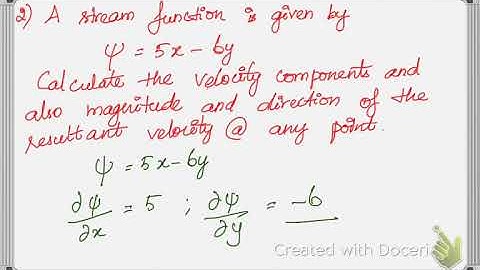 2) A stream function is given by
ψ = 5x - 6y
Calculate the velocity components and
also magnitude and direction of the
resultant velocity @ any point.
ψ = 5x - 6y
∂ψ/∂x = 5 ; ∂ψ/∂y = -6
Created with Doceri